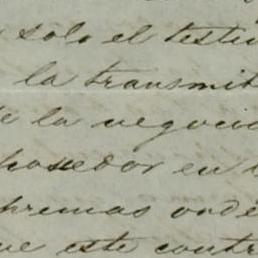 solo el testi
la transmit
la negocia
posedor en
premas orde
ue este contr